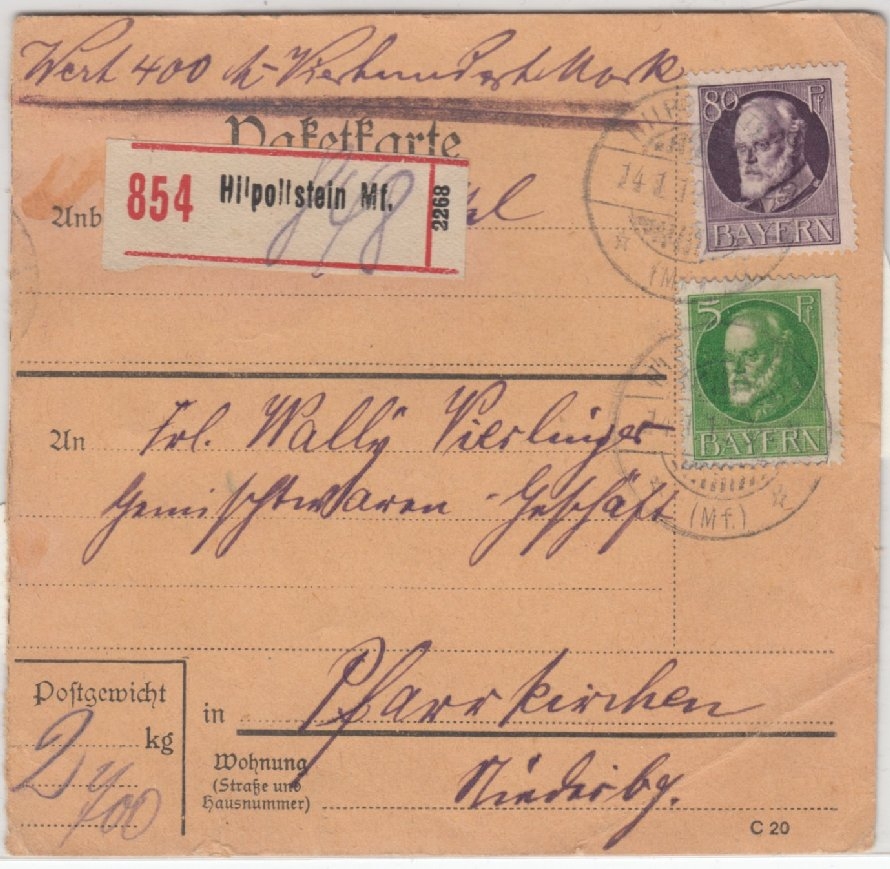 Wert 400 M Vierhundert Mark
Paketkarte
854 Hilpoltstein Mf. 2268
Anb
80 Pf
BAYERN
14.1.
(Mf.)
5 Pf
BAYERN
14.
(Mf.)
An Frl. Wally Vierlinger
Gemischtwaren-Geschäft
Postgewicht
kg
2
400
in Pfarrkirchen
Wohnung
(Straße und
Hausnummer)
Niederby.
C 20